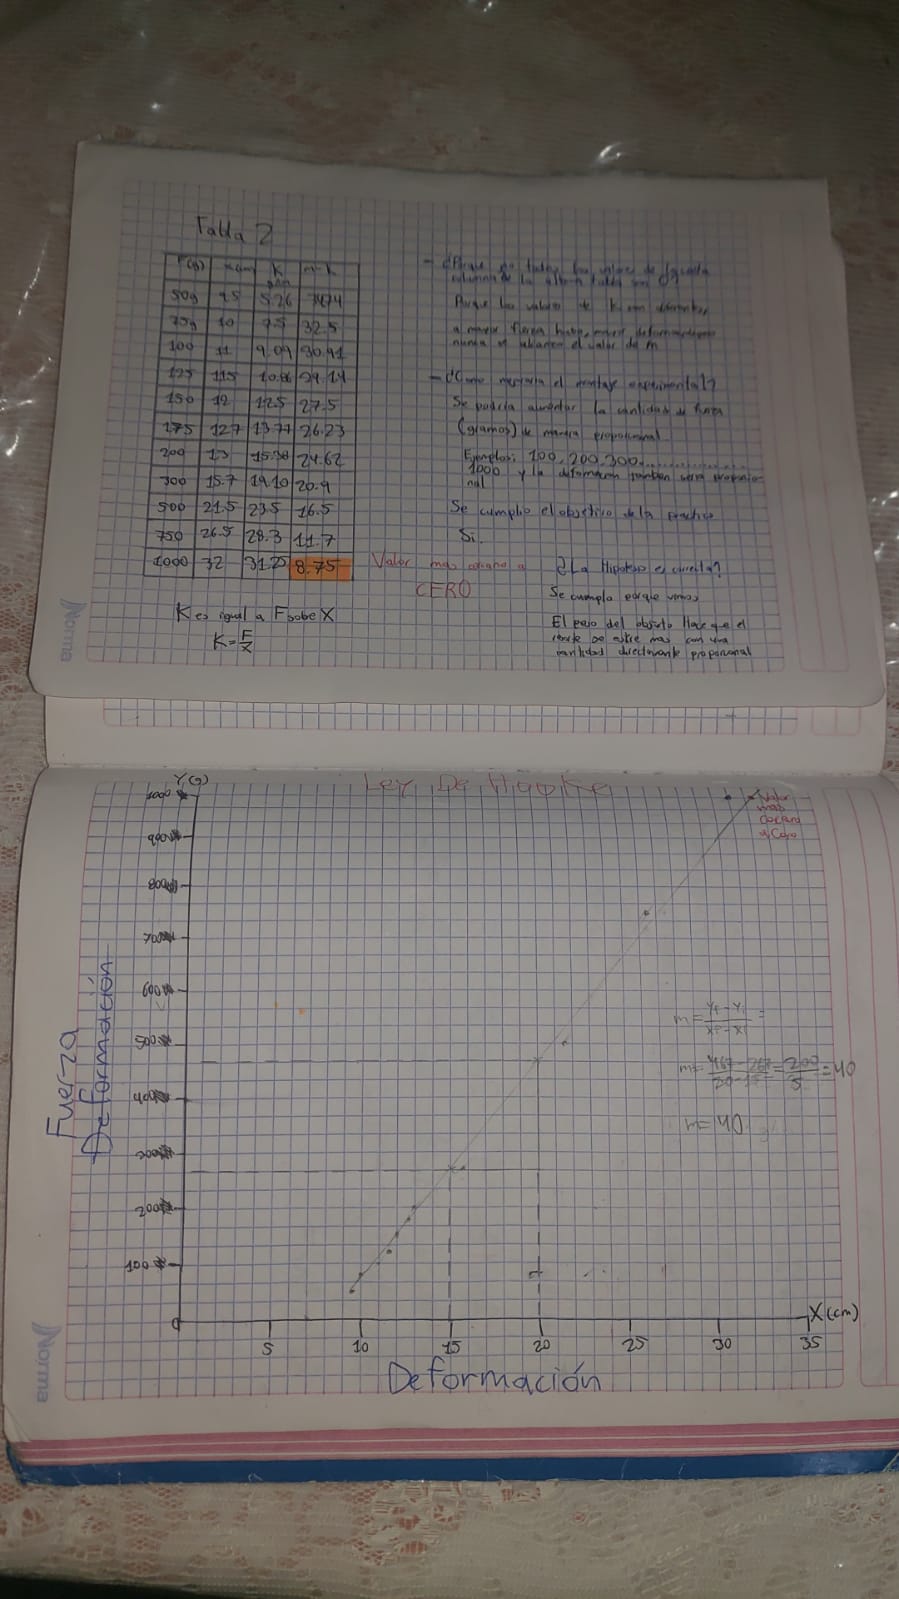 Tabla 2
F(g) x(cm) K m-k
50g 9.5 5.26 34.74
75g 10 7.5 32.5
100 11 9.09 30.91
125 11.5 10.86 29.14
150 12 12.5 27.5
175 12.7 13.77 26.23
200 13 15.38 24.62
300 15.7 19.10 20.9
500 21.5 23.5 16.5
750 26.5 28.3 11.7
1000 32 31.25 8.75
Valor mas cercano a
CERO
K es igual a F sobe X
K=F/X
- ¿Porque no todos los valores de
columna de la ultima tabla son 0?
Porque los valores de K son diferentes,
a mayor fuerza hubo mayor deformacion
nunca se alcanzo el valor de m
- ¿Como mejoraria el montaje experimental?
Se podria aumentar la cantidad de fuerza
(gramos) de manera proporcional
Ejemplos: 100, 200, 300..............
1000 y la deformacion tambien sera proporcio-
nal
Se cumplio el objetivo de la practica
Si.
¿La Hipotesis es correcta?
Se cumple porque vimos
El peso del objeto Hace que el
resorte se estire mas con una
cantidad directamente proporcional
Norma
Ley De Hooke
Y(G)
1000
900
800
700
600
500
400
300
200
100
0
Fuerza
Deformación
Valor
mas
Cercano
a Cero
m=Yf-Yi/Xf-Xi=
m=467-267/20-15=200/5=40
m=40
5 10 15 20 25 30 35
X(cm)
Deformación
Norma